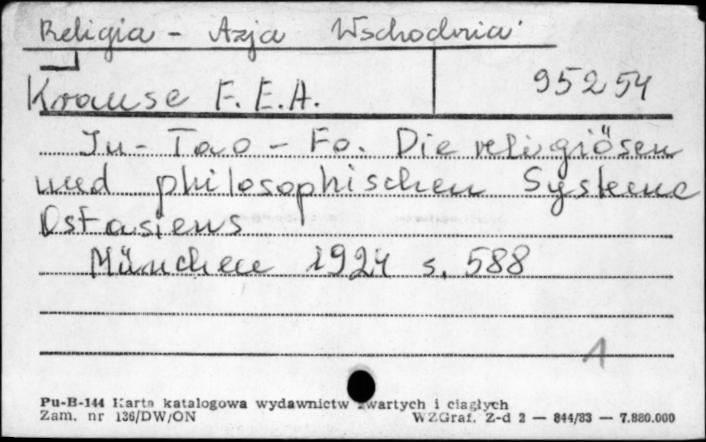 Religia - Azja Wschodnia
Krause F.E.A. 95254
Ju - Tao - Fo. Die religiösen
und philosophischen Systeme
Ostasiens
München 1924 s. 588
1
Pu-B-144 Karta katalogowa wydawnictw zwartych i ciągłych
Zam. nr 136/DW/ON WZGraf. Z-d 2 — 844/83 — 7.880.000